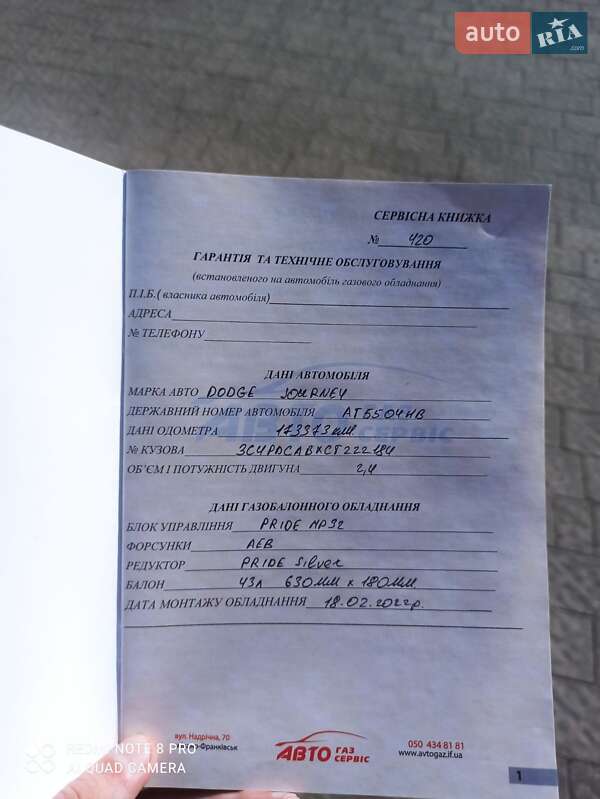 auto RIA.com
СЕРВІСНА КНИЖКА
№ 420
ГАРАНТІЯ ТА ТЕХНІЧНЕ ОБСЛУГОВУВАННЯ
(встановленого на автомобіль газового обладнання)
П.І.Б.( власника автомобіля)
АДРЕСА
№ ТЕЛЕФОНУ
ДАНІ АВТОМОБІЛЯ
МАРКА АВТО DODGE JOURNEY
ДЕРЖАВНИЙ НОМЕР АВТОМОБІЛЯ AT5504HB
ДАНІ ОДОМЕТРА 173373 км
№ КУЗОВА 3C4PDCABXCT222184
ОБ'ЄМ І ПОТУЖНІСТЬ ДВИГУНА 2,4
ДАНІ ГАЗОБАЛОННОГО ОБЛАДНАННЯ
БЛОК УПРАВЛІННЯ PRIDE MP32
ФОРСУНКИ AEB
РЕДУКТОР PRIDE Silver
БАЛОН 43л 630мм x 180мм
ДАТА МОНТАЖУ ОБЛАДНАННЯ 18.02.2022р.
вул. Надрічна, 70
-Франківськ
АВТО ГАЗ СЕРВІС
050 434 81 81
www.avtogaz.if.ua
1
REDMI NOTE 8 PRO
AI QUAD CAMERA